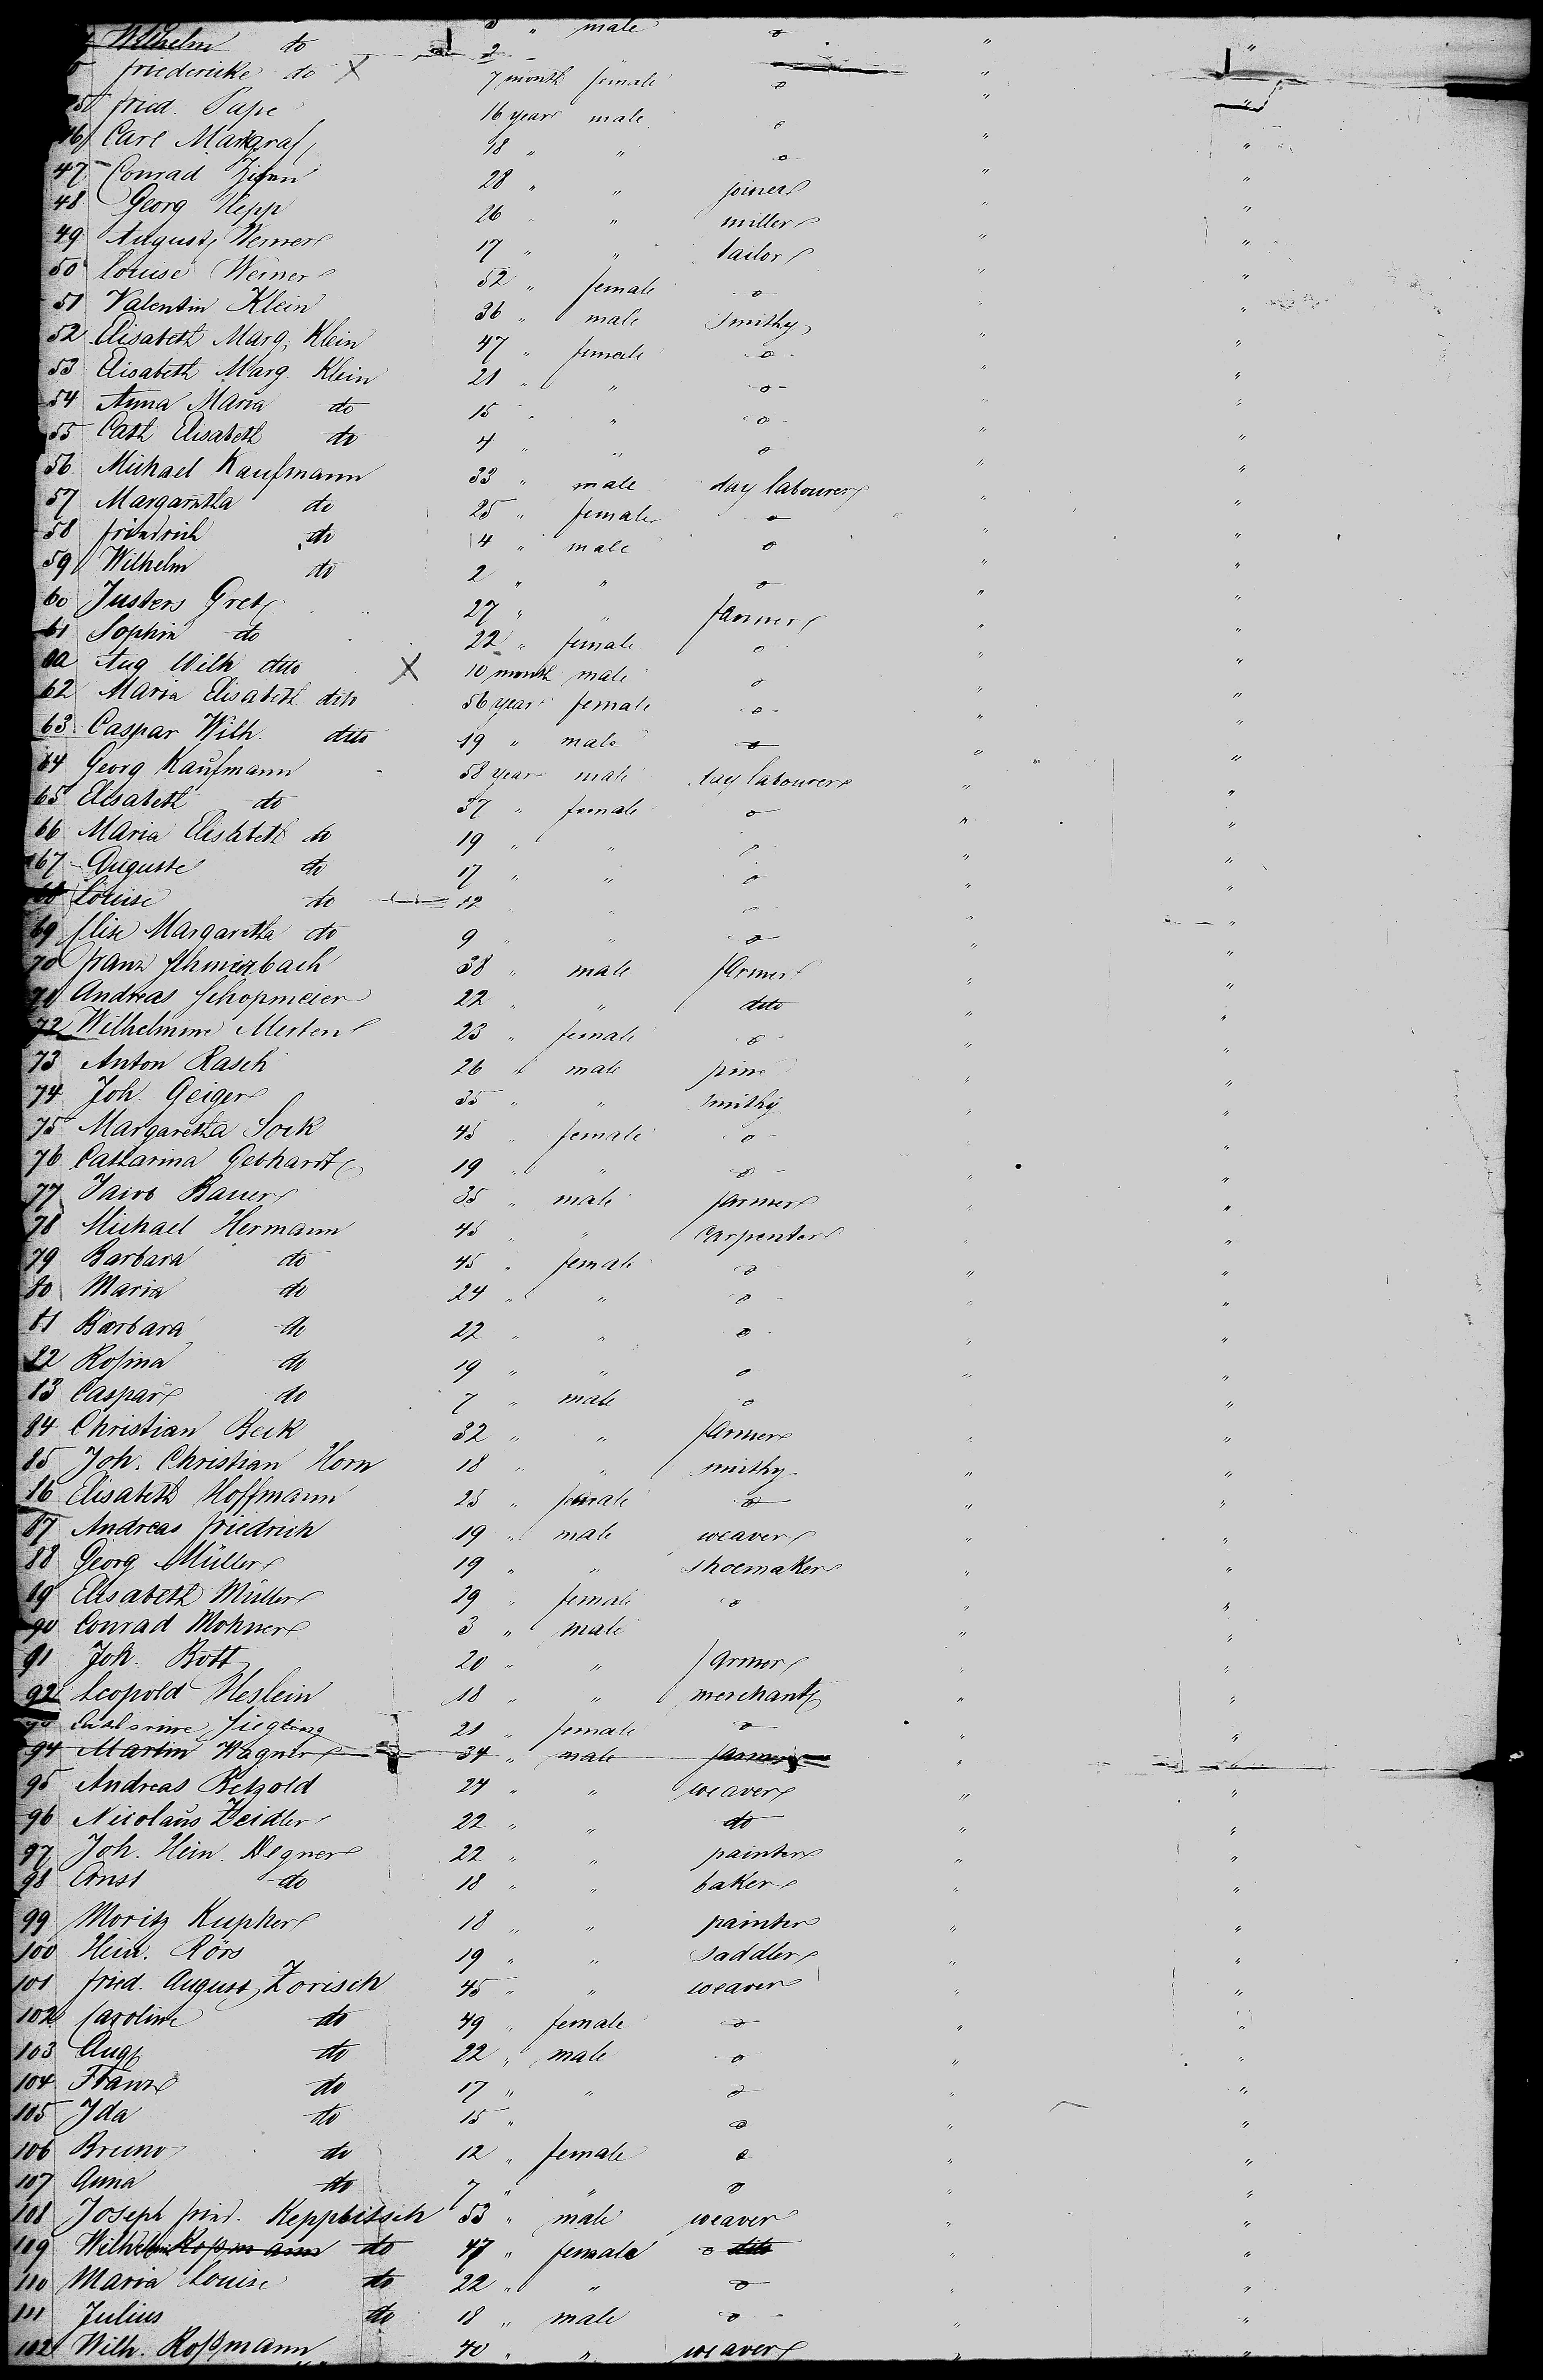 Wilhelm do 2 " male o " "
Friedericke do X 7 month female o " "
45 Fried. Pape 16 year male o " "
46 Carl Markgraf 18 " " o " "
47 Conrad Zinn 28 " " joiner " "
48 Georg Hepp 26 " " miller " "
49 August Werner 17 " " tailor " "
50 Louise Werner 52 " female o " "
51 Valentin Klein 36 " male smithy " "
52 Elisabeth Marg. Klein 47 " female o " "
53 Elisabeth Marg. Klein 21 " " o " "
54 Anna Maria do 15 " " o " "
55 Cath Elisabeth do 4 " " o " "
56 Michael Kaufmann 33 " male day labourer " "
57 Margaretha do 25 " female o " "
58 Friedrich do 4 " male o " "
59 Wilhelm do 2 " " o " "
60 Justers Gretz 27 " " farmer " "
61 Sophia do 22 " female o " "
Aug Wilh dito X 10 month male o " "
62 Maria Elisabeth dito 56 year female o " "
63 Caspar Wilh. dito 19 " male o " "
64 Georg Kaufmann 58 year male day labourer " "
65 Elisabeth do 37 " female o " "
66 Maria Elisabeth do 19 " " o " "
67 Auguste do 17 " " o " "
68 Louise do 12 " " o " "
69 Elise Margaretha do 9 " " o " "
70 Franz Schmierbach 38 " male farmer " "
71 Andreas Schopmeier 22 " " dito " "
72 Wilhelmine Merten 23 " female o " "
73 Anton Rasch 26 " male " "
74 Joh. Geiger 35 " " smithy " "
75 Margaretha Sock 45 " female o " "
76 Catharina Gebhardt 19 " " o " "
77 Jacob Bauer 35 " male farmer " "
78 Michael Hermann 45 " " carpenter " "
79 Barbara do 45 " female o " "
80 Maria do 24 " " o " "
81 Barbara do 22 " " o " "
82 Rosina do 19 " " o " "
83 Caspar do 7 " male o " "
84 Christian Beck 32 " " farmer " "
85 Joh. Christian Horn 18 " " smithy " "
86 Elisabeth Hoffmann 25 " female o " "
87 Andreas Friedrich 19 " male weaver " "
88 Georg Müller 19 " " shoemaker " "
89 Elisabeth Müller 29 " female o " "
90 Conrad Mohner 3 " male " "
91 Joh. Bott 20 " " farmer " "
92 Leopold Heslein 18 " " merchant " "
93 Siegling 21 " female o " "
94 Martin Wagner 34 " male farmer " "
95 Andreas Retzold 27 " " weaver " "
96 Nicolaus Zeidler 22 " " do " "
97 Joh. Hein. Degner 22 " " painter " "
98 Ernst do 18 " " baker " "
99 Moritz Kupker 18 " " painter " "
100 Hein. Rörs 19 " " saddler " "
101 Fried. August Zorisch 45 " " weaver " "
102 Caroline do 49 " female o " "
103 Aug do 22 " male o " "
104 Franz do 17 " " o " "
105 Ida do 15 " o " "
106 Bruno do 12 " female o " "
107 Anna do 7 " " o " "
108 Joseph Fried. Keppbitsch 53 " male weaver " "
109 Wilhelm Roßmann do 47 " female o dito " "
110 Maria Louise do 22 " " o " "
111 Julius do 18 " male o " "
112 Wilh. Roßmann 40 " " weaver " "